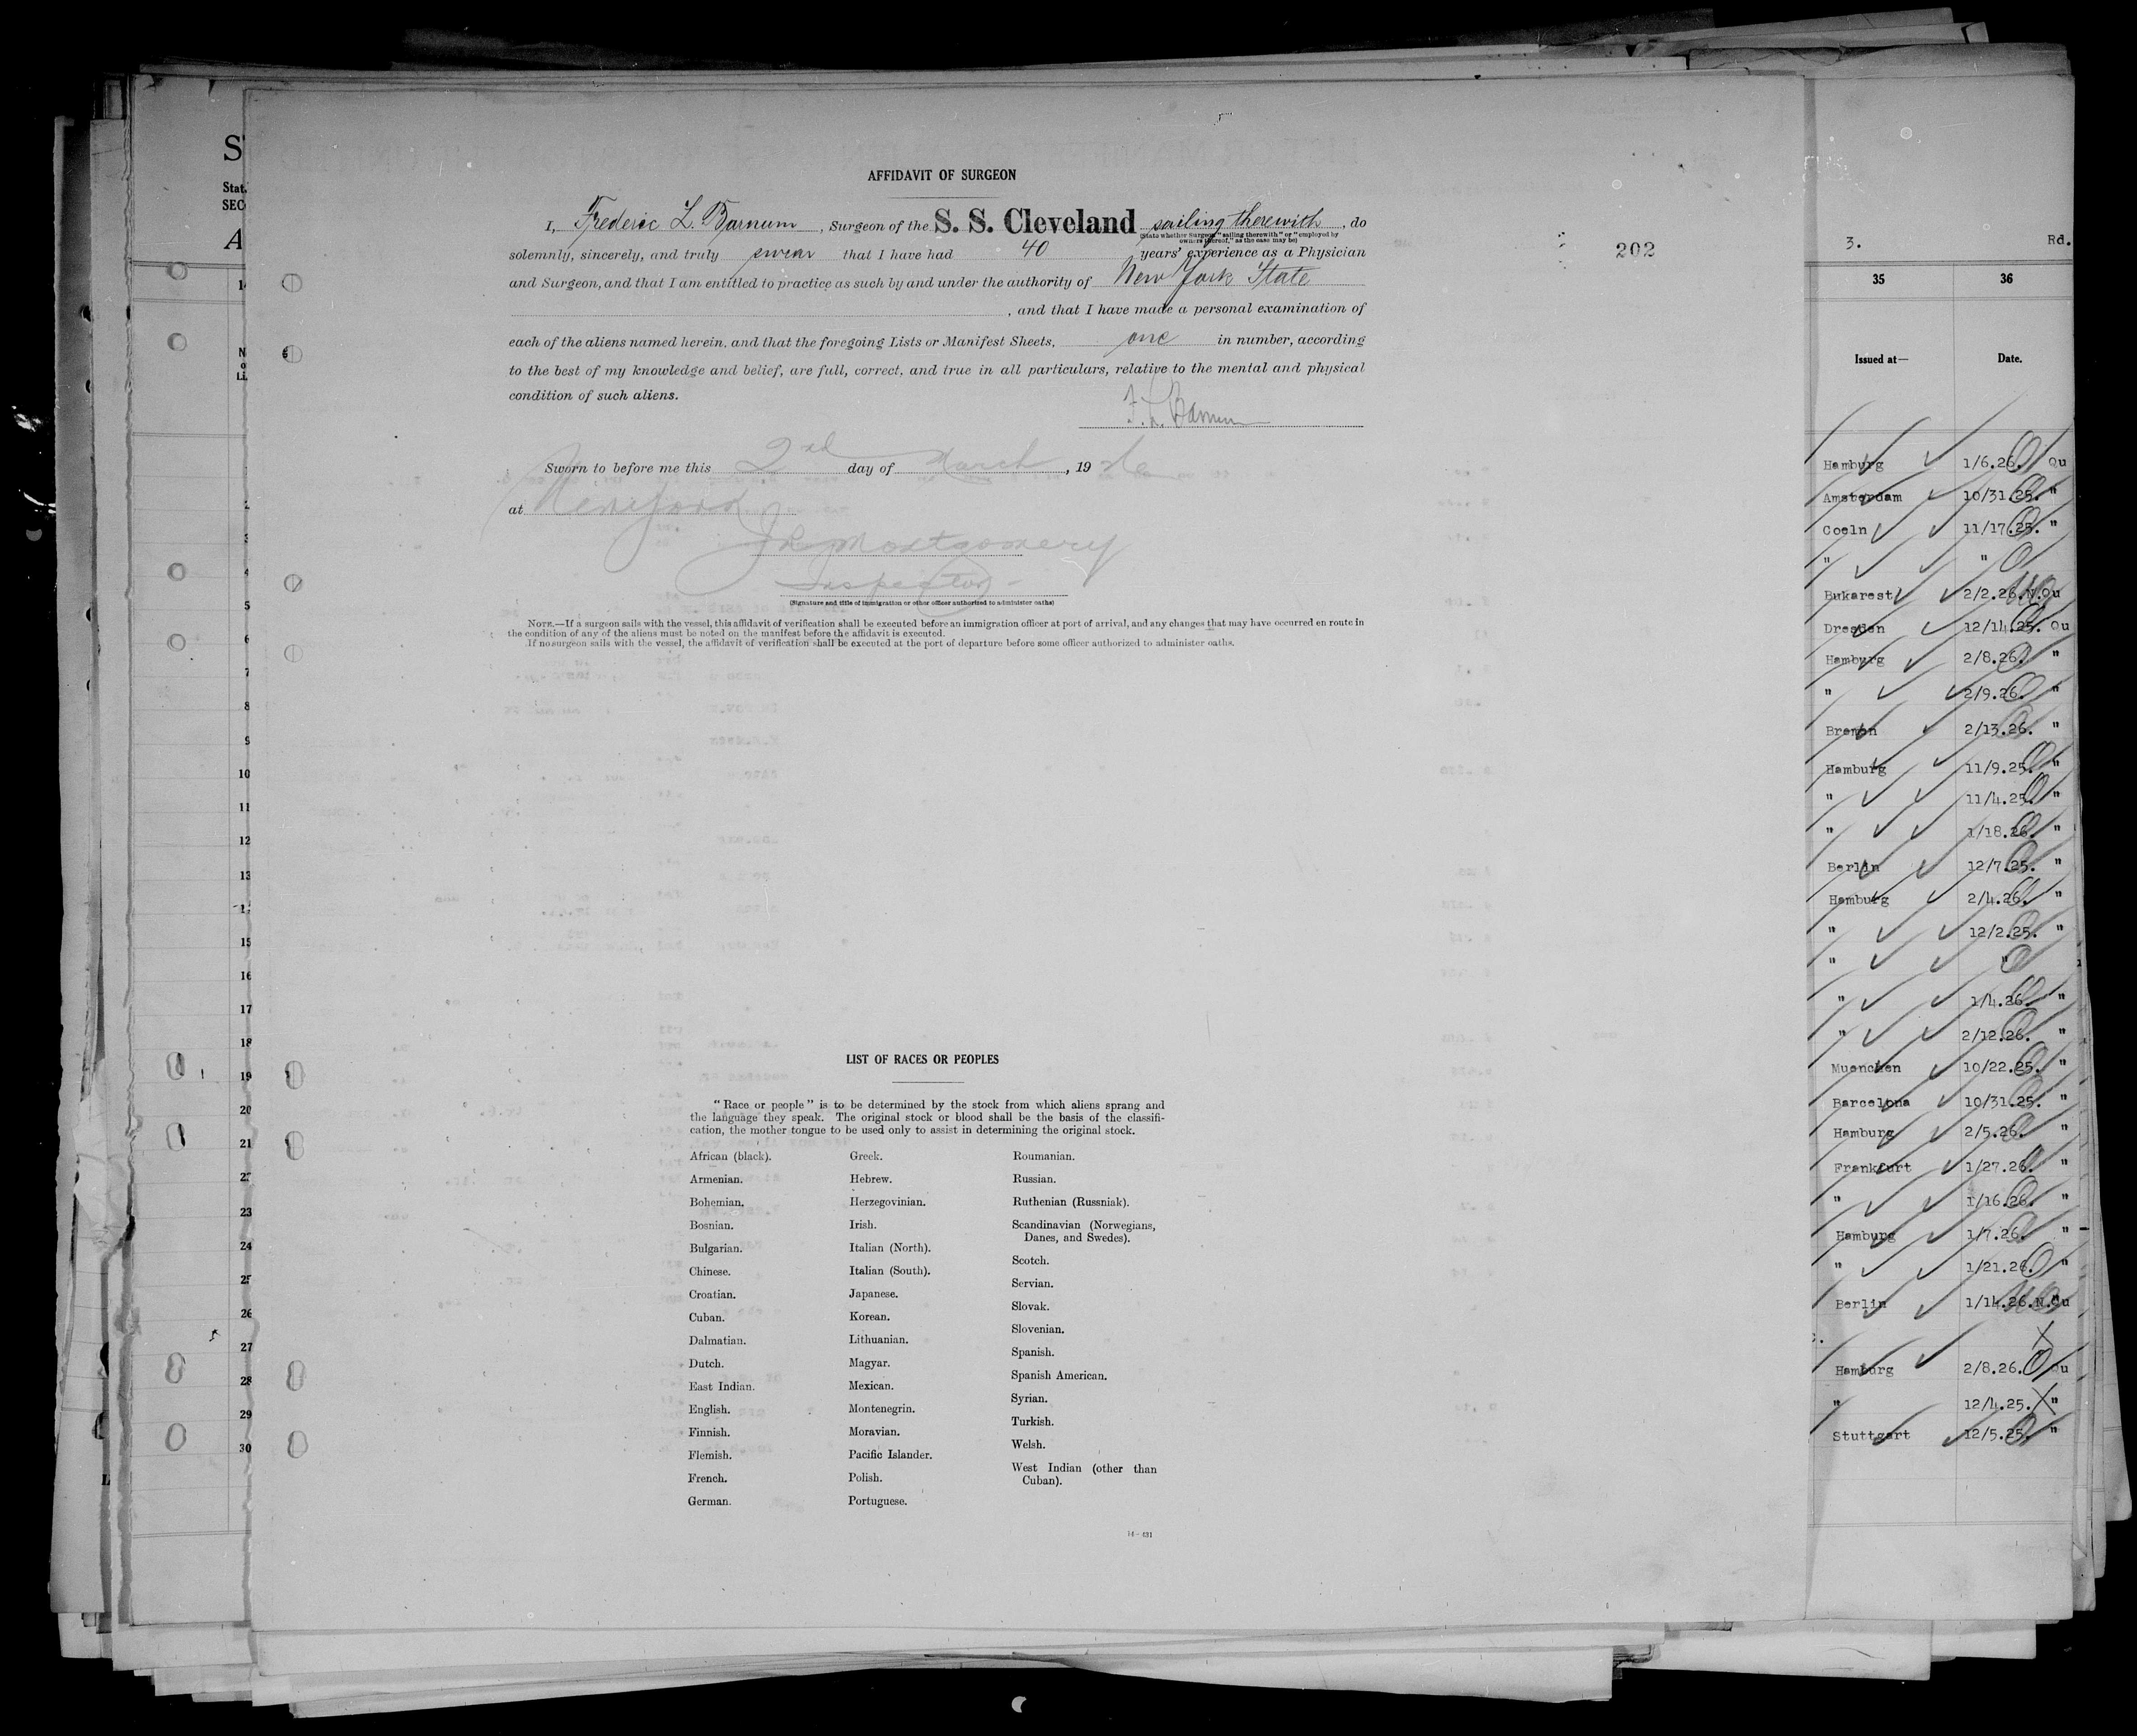 AFFIDAVIT OF SURGEON
I, Frederic L. Barnum, Surgeon of the S. S. Cleveland sailing therewith, do
(State whether Surgeon "sailing therewith" or "employed by
owners thereof," as the case may be)
solemnly, sincerely, and truly swear that I have had 40 years' experience as a Physician
and Surgeon, and that I am entitled to practice as such by and under the authority of New York State
, and that I have made a personal examination of
each of the aliens named herein, and that the foregoing Lists or Manifest Sheets, one in number, according
to the best of my knowledge and belief, are full, correct, and true in all particulars, relative to the mental and physical
condition of such aliens.
F. L. Barnum
Sworn to before me this 2nd day of March, 19 26
at New York
Montgomery
Inspector
(Signature and title of immigration or other officer authorized to administer oaths)
NOTE.—If a surgeon sails with the vessel, this affidavit of verification shall be executed before an immigration officer at port of arrival, and any changes that may have occurred en route in
the condition of any of the aliens must be noted on the manifest before the affidavit is executed.
If no surgeon sails with the vessel, the affidavit of verification shall be executed at the port of departure before some officer authorized to administer oaths.
202
LIST OF RACES OR PEOPLES
"Race or people" is to be determined by the stock from which aliens sprang and
the language they speak. The original stock or blood shall be the basis of the classifi-
cation, the mother tongue to be used only to assist in determining the original stock.
African (black).
Armenian.
Bohemian.
Bosnian.
Bulgarian.
Chinese.
Croatian.
Cuban.
Dalmatian.
Dutch.
East Indian.
English.
Finnish.
Flemish.
French.
German.
Greek.
Hebrew.
Herzegovinian.
Irish.
Italian (North).
Italian (South).
Japanese.
Korean.
Lithuanian.
Magyar.
Mexican.
Montenegrin.
Moravian.
Pacific Islander.
Polish.
Portuguese.
Roumanian.
Russian.
Ruthenian (Russniak).
Scandinavian (Norwegians,
Danes, and Swedes).
Scotch.
Servian.
Slovak.
Slovenian.
Spanish.
Spanish American.
Syrian.
Turkish.
Welsh.
West Indian (other than
Cuban).
3. Rd.
35 36
Issued at— Date.
Hamburg 1/6.26. Qu
Amsterdam 10/31.25. "
Coeln 11/17.25. "
" "
Bukarest 2/2.26.N.Qu
Dresden 12/14.25. Qu
Hamburg 2/8.26. "
" 2/9.26. "
Bremen 2/13.26. "
Hamburg 11/9.25. "
" 11/4.25. "
" 1/18.26. "
Berlin 12/7.25. "
Hamburg 2/4.26. "
" 12/2.25. "
" "
" 1/4.26. "
" 2/12.26. "
Muenchen 10/22.25. "
Barcelona 10/31.25. "
Hamburg 2/5.26. "
Frankfurt 1/27.26. "
" 1/16.26. "
Hamburg 1/7.26. "
" 1/21.26. "
Berlin 1/14.26.N.Qu
Hamburg 2/8.26. Qu
" 12/4.25. "
Stuttgart 12/5.25. "
S
Stat
SEC
A
5
6
7
8
9
10
11
12
13
15
16
17
18
19
20
21
23
24
26
27
28
29
30